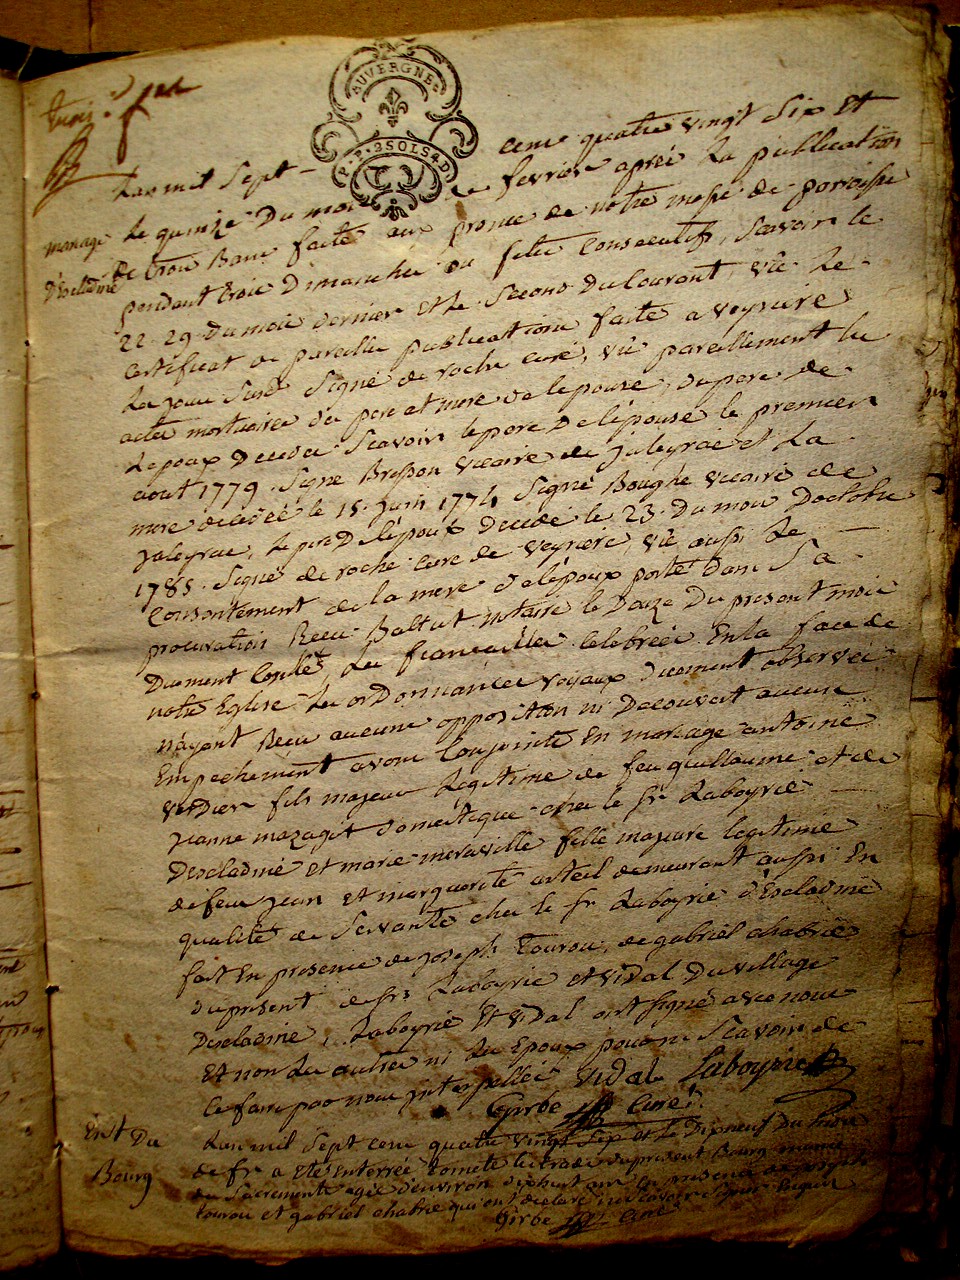 AUVERGNE.
P.P. 2 SOLS 4 D
Lan mil Sept cent quatre vingt Six Et
mariage Le quinze Du mois de fevrier aprés La publication
d'Escladine de trois Bans faite aux prones de notre messe de paroisse
pendant trois Dimanches ou fetes Consecutifs, Scavoir le
22. 29. du mois dernier Et le Second du Courant, vû Le
Certificat de pareilles publications faite a veyriere
Le jour Susd Signé de roche curé, vû pareillement les
actes mortuaires du pere et mere de lepouse, du pere de
Lepoux Decedés Scavoir le pere De l'épouse le premier
aout 1779. Signé Brosson vicaire de jaleyrac et La
mere decedée le 15. juin 1774 Signé Boughe vicaire de
jaleyrac, Le pere De l'époux Decedé le 23. Du mois Doctobre
1785. Signé de roche curé de veyriere, vû aussi Le
Consentement de la mere de lépoux porté dans Sa
procuration Recu Baltut notaire le Douze Du present mois
Duement Controllé, Les fiancailles Celebrées En la face de
notre Eglise Les ordonnances royaux duement observées
n'ayant Recu aucune opposition ni Decouvert aucun
Empechement avons Conjoints En mariage antoine
verdier fils majeur Legitime de feu guillaume et de
jeanne mazagit domestique chez le Sr Laboyrie
Descladine et marie meraville fille majeure legitime
de feu jean et marguerite demeurant aussi En
qualité de Servante chez le Sr Laboyrie d'Escladine
fait En presence de joseph Tourou, de gabriel chabrie
du present de Srs Laboyrie et vidal Du village
Descladine, Laboyrie Et vidal ont signé avec nous
Et non Les autres ni Les Epoux pour ne Scavoir de
Ce faire par nous interpellés vidal Laboyrie
Girbe Curé
Ent Du Lan mil Sept cent quatre vingt Six et le Dixneuf Du mois
Bourg de fr a Eté Enterrée du present Bourg munie
des Sacrements agée d'environ ans En presence de joseph
tourou et gabriel chabrie qui ont declaré ne Scavoir Signer
Girbe Curé